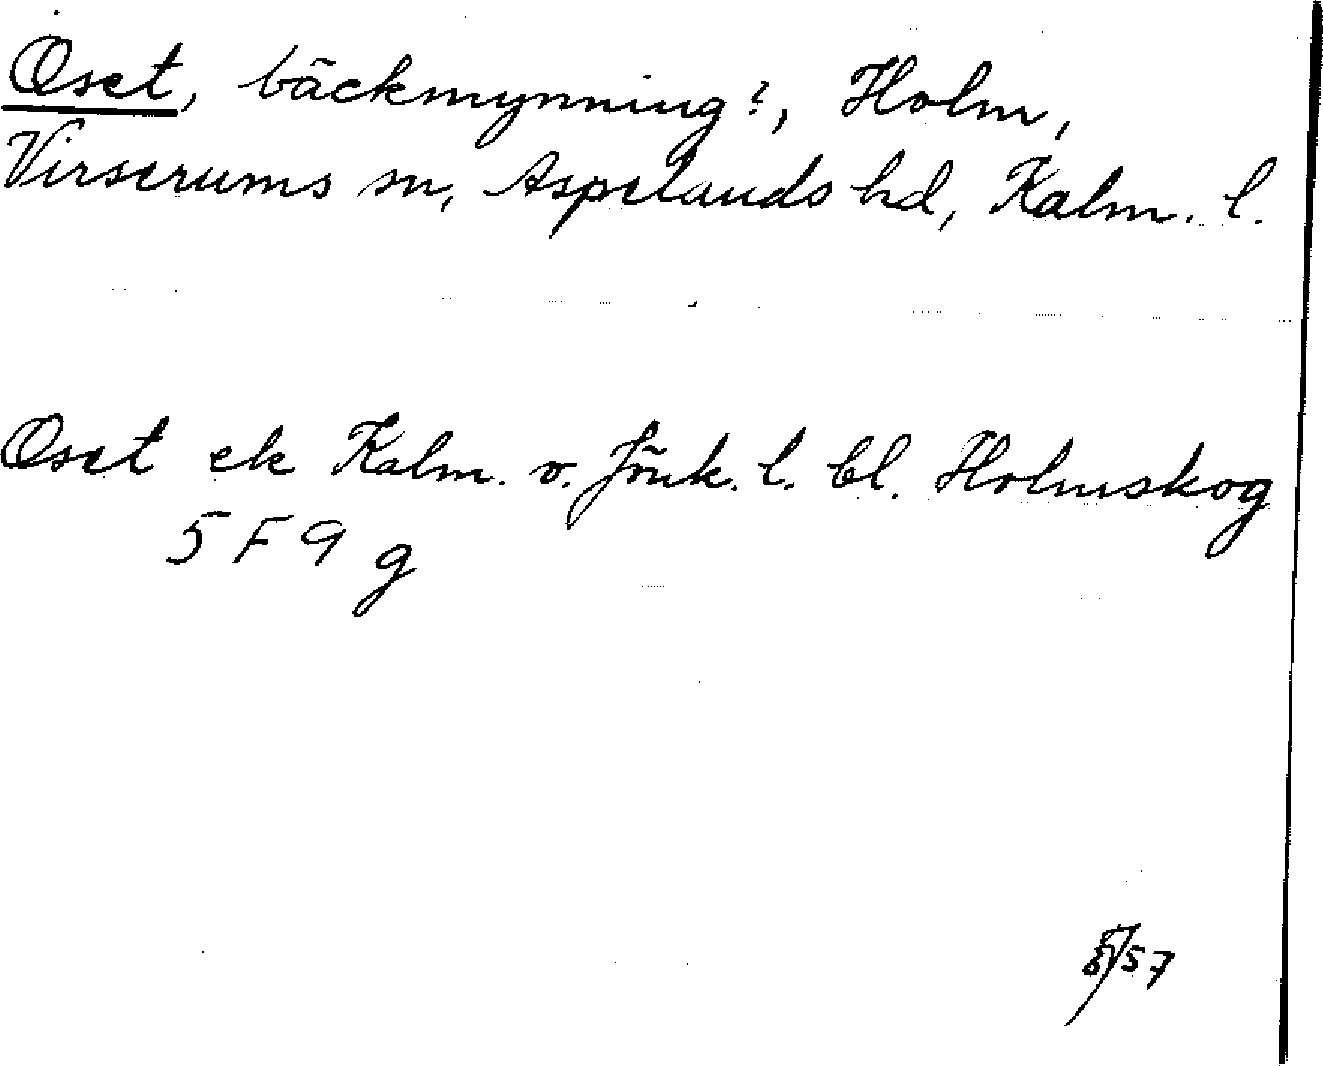 Oset, bäckmynning?, Holm,
Virserums sn, Aspelands hd, Kalm. l.
Oset ek Kalm. v. Jönk. l. bl. Holmskog
5 F 9 g